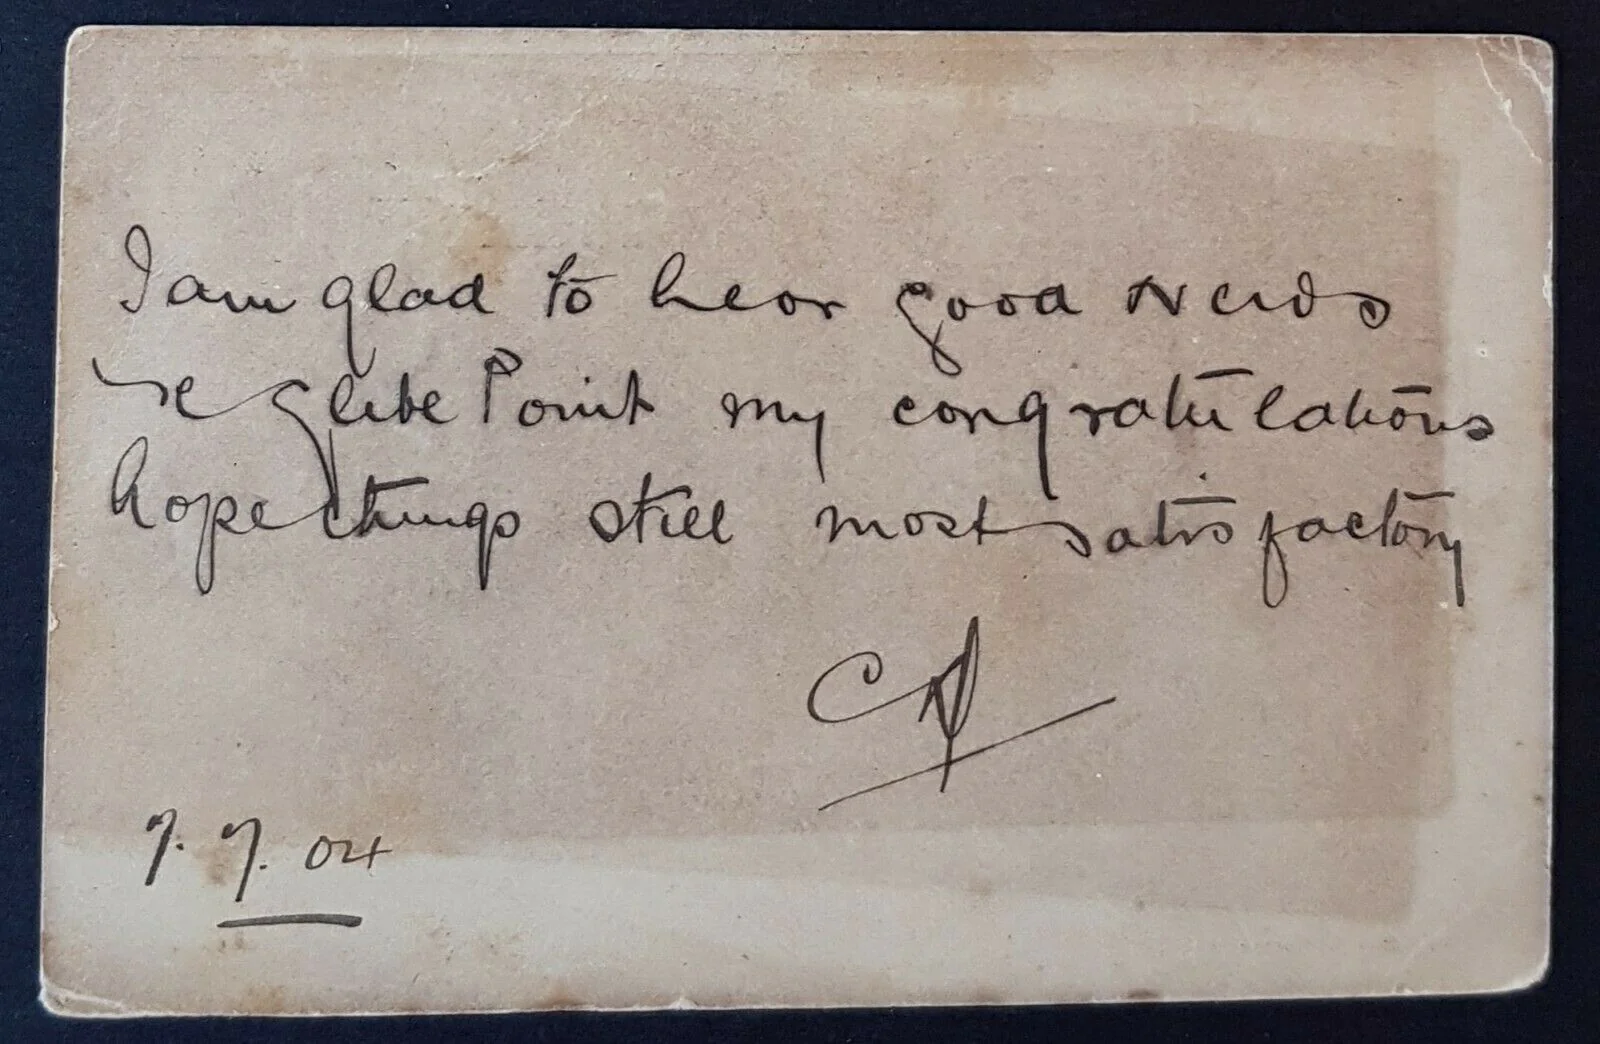 I am glad to hear good news
re Glebe Point my congratulations
hope things still most satisfactory
7. 7. 04